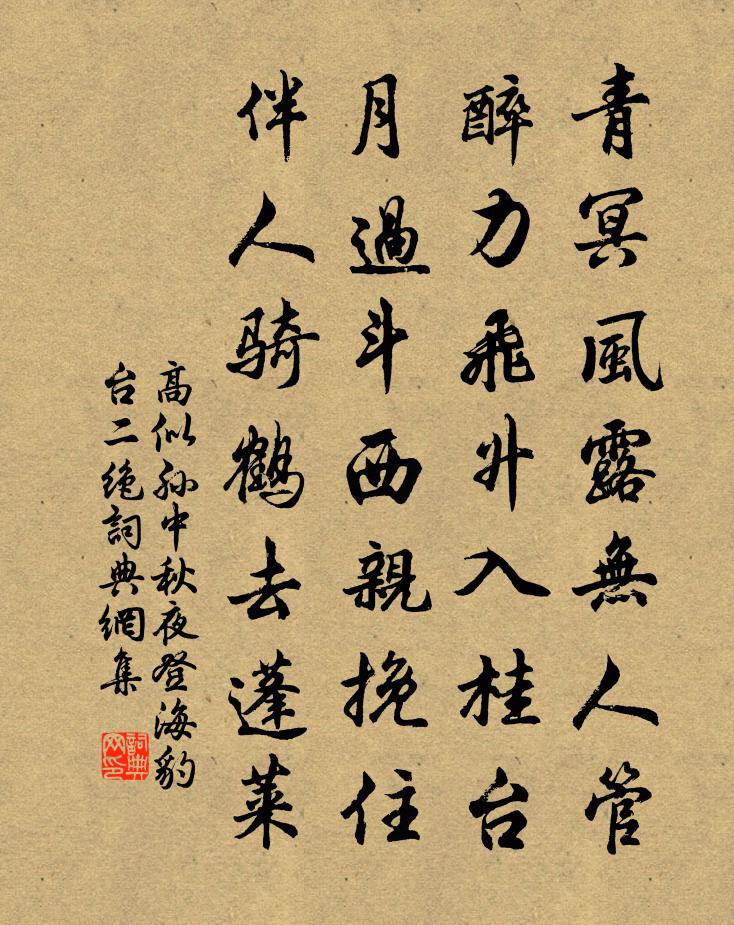 青冥風露無人管
醉力飛升入桂台
月過斗西親挽住
伴人騎鶴去蓬萊
高似孫中秋夜登海豹
台二絶詞典網集
詞典网印